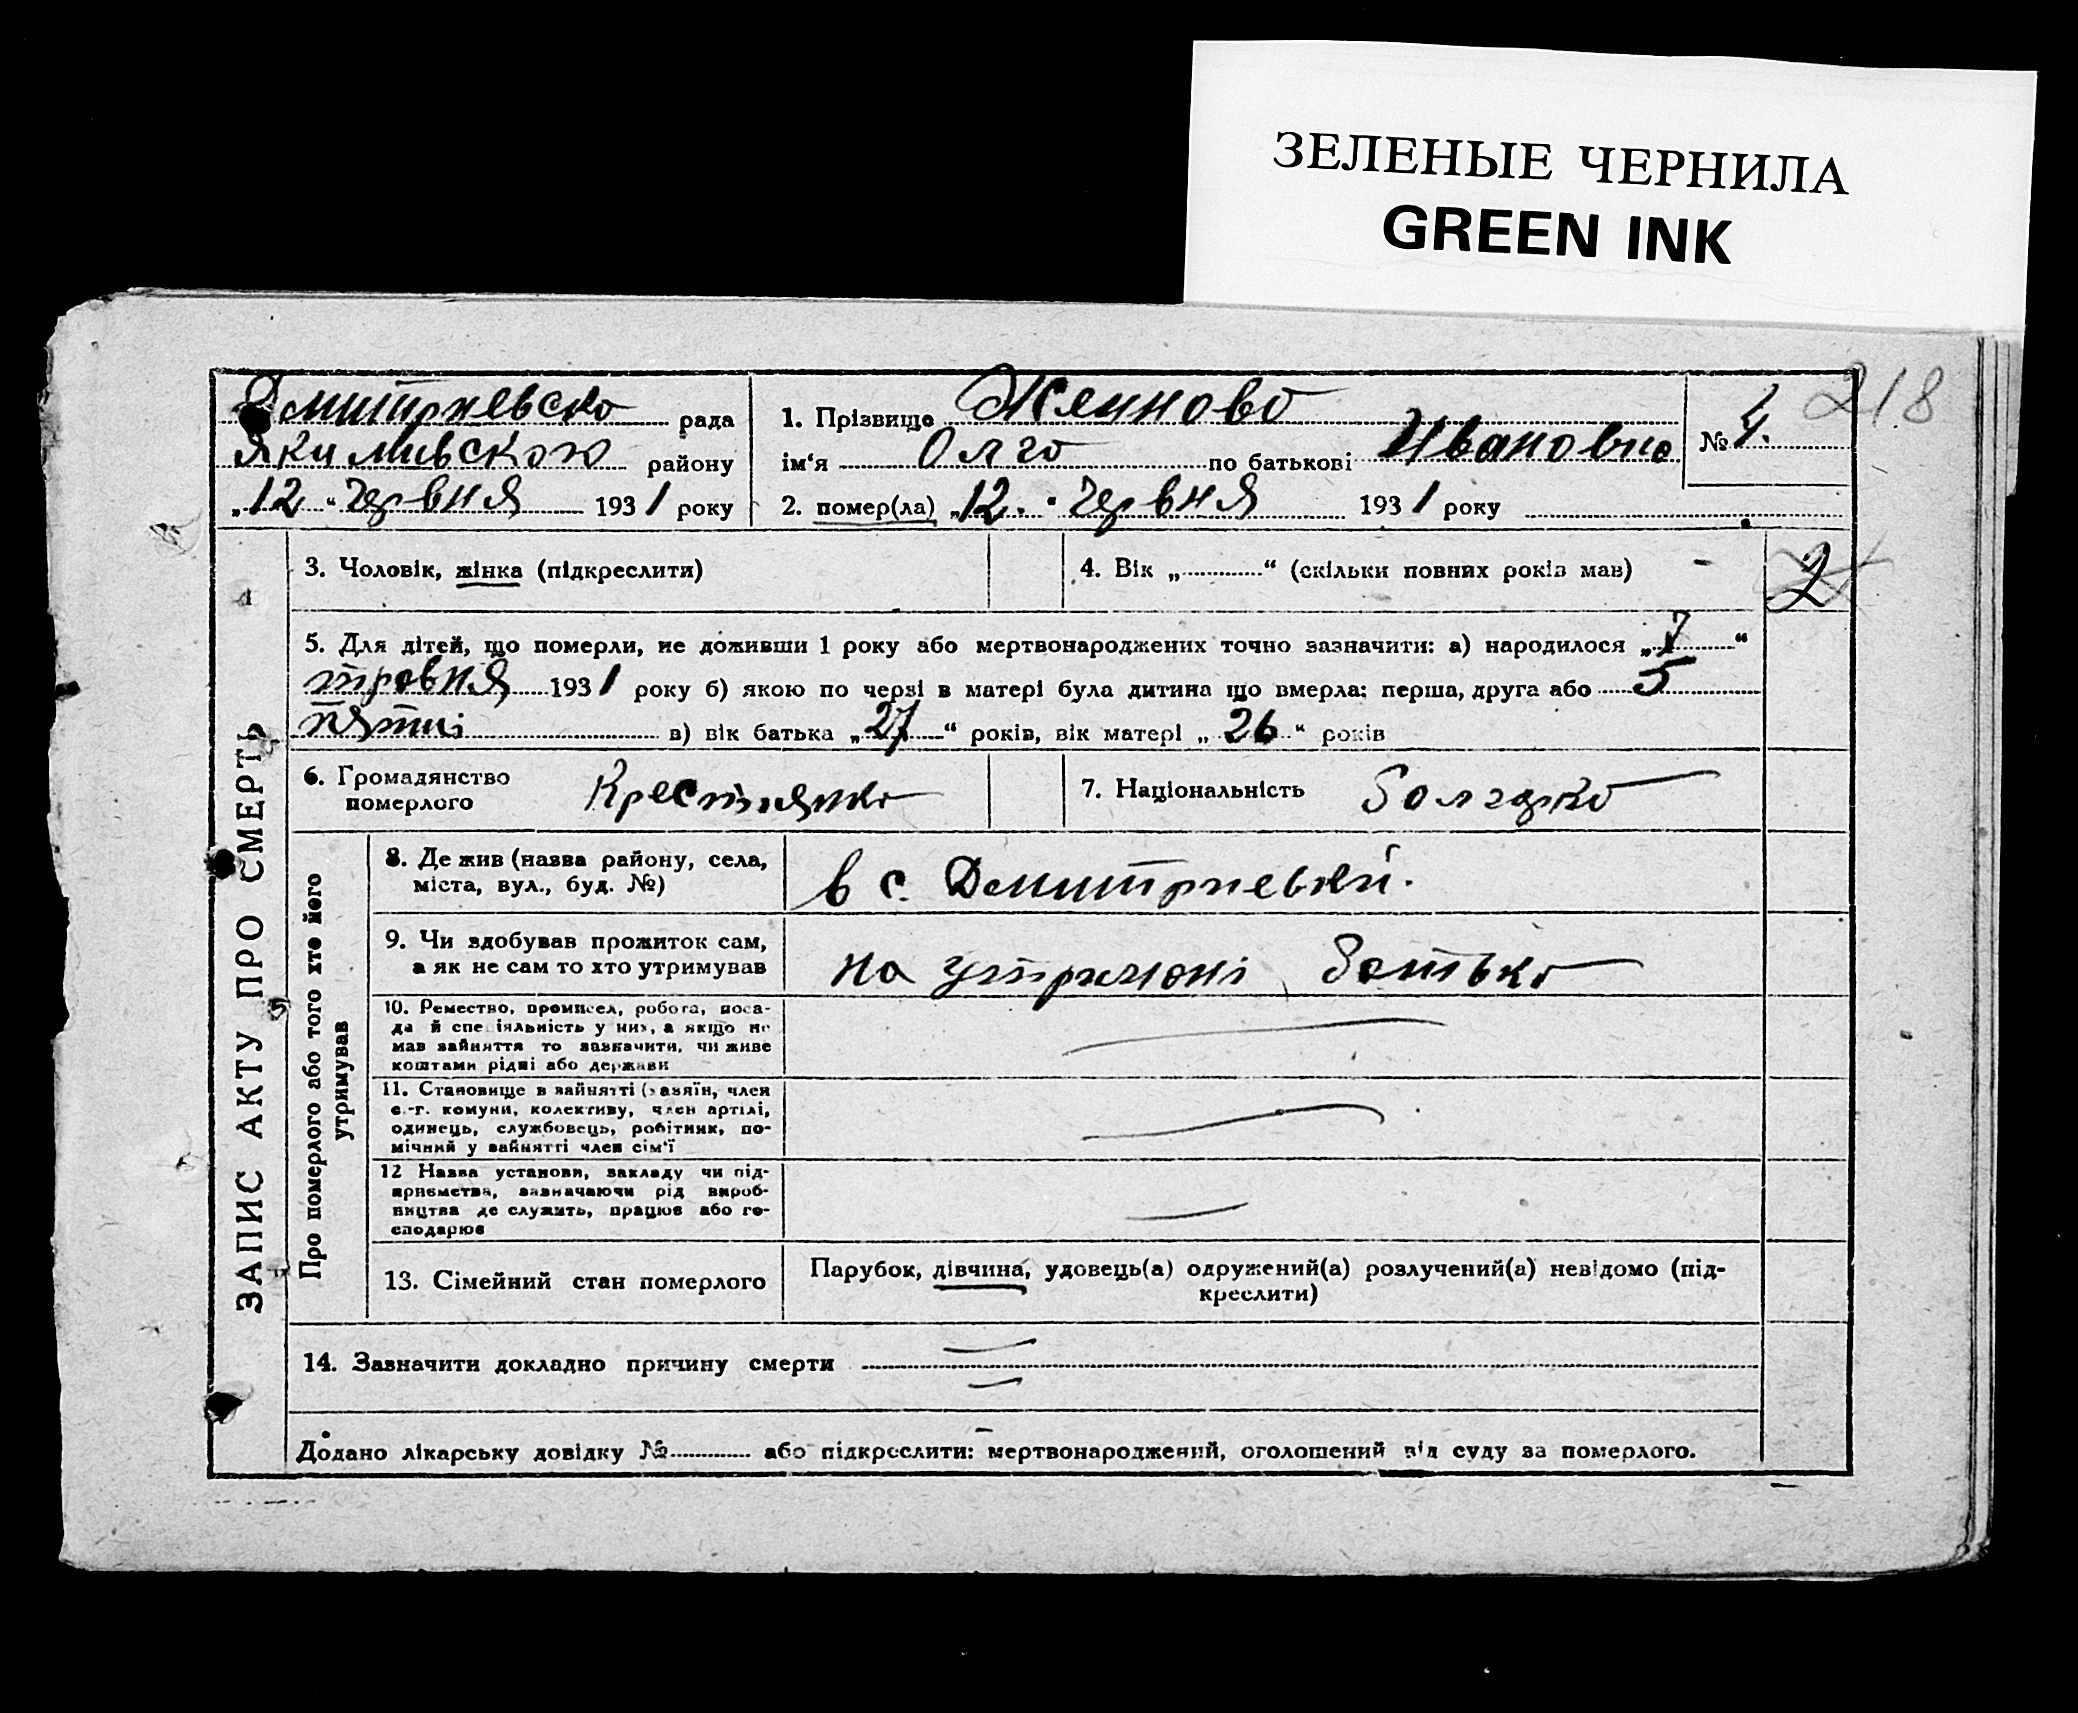 ЗЕЛЕНЫЕ ЧЕРНИЛА
GREEN INK
218
Дмитриевско рада
Якимивского району
„12“ Червня 1931 року
1. Прізвище Женново
ім'я Олго по батькові Ивановно
2. помер(ла) „12.“ Червня 1931 року
№ 4.
3. Чоловік, жінка (підкреслити)
4. Вік „ “ (скільки повних років мав) -
2
5. Для дітей, що померли, не доживши 1 року або мертвонароджених точно зазначити: а) народилося „7“
тровня 1931 року б) якою по черзі в матері була дитина що вмерла: перша, друга або 5
пятиі в) вік батька „27“ років, вік матері „26“ років
6. Громадянство
померлого Крестиянко
7. Національність Болгарко
ЗАПИС АКТУ ПРО СМЕРТЬ
Про померлого або того хто його
утримував
8. Де жив (назва району, села,
міста, вул., буд. №)
в с. Дмитриевкй.
9. Чи здобував прожиток сам,
а як не сам то хто утримував
на утримоні Ботько
10. Ремество, промисел, робота, поса-
да й спеціяльність у них, а якщо не
мав зайняття то зазначити, чи живе
коштами рідні або держави
11. Становище в зайнятті (хазяїн, член
с.-г. комуни, колективу, член артілі,
одинець, службовець, робітник, по-
мічний у зайнятті член сім'ї
12 Назва установи, закладу чи під-
приємства, зазначаючи рід вироб-
ництва де служить, працює або го-
сподарює
13. Сімейний стан померлого
Парубок, дівчина, удовець(а) одружений(а) розлучений(а) невідомо (під-
креслити)
14. Зазначити докладно причину смерти
Додано лікарську довідку № або підкреслити: мертвонароджений, оголошений від суду за померлого.